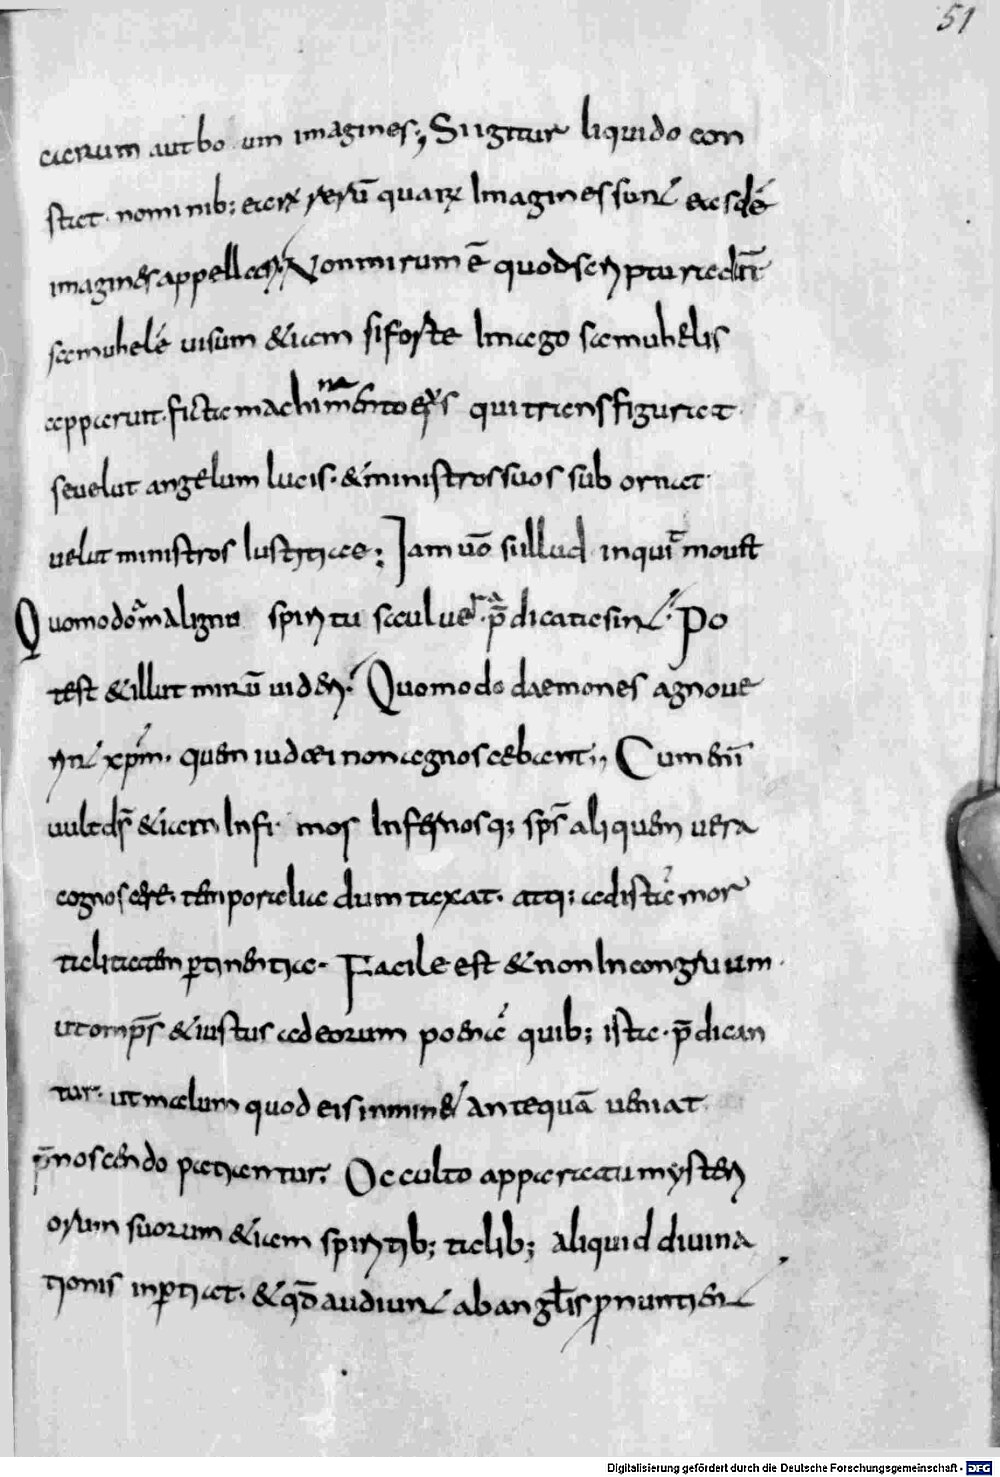 51
aerum aut bo um imagines; Si igitur liquido con
stat nominib; earū rerū quarū Imagines sunt easdē
imagines appellari; Non mirum ē quod scriptura dicit
samuhelē uisum etiam si forte Imago samuhelis
apparuit. ficta machinamento eius qui transfigurat
se uelut angelum lucis. & ministros suos sub ornat
uelut ministros Iustitiae; Iam uō si illud inquit mouet
Quomodo a maligno spiritu saulu uera p̄dicata sint. Po
test & illut mirū uideri. Quomodo daemones agnoue
rint xp̄m. quem iudaei non agnoscebant; Cum enī
uult d̄s etiam Infi mos Infernosq; sp̄s aliquem uera
cognoscere. temporalia dum taxat. atq; ad istā mor
talitatem pertinentia. Facile est & non Incongruum
ut omp̄s & iustus ad eorum poenā quib; ista p̄dican
tur. ut malum quod eis inminet antequā ueniat
p̄noscendo patiantur; Occulto apparatu mysteri
orum suorum etiam spiritib; talib; aliquid diuina
tionis inpertiat. & qd̄ audiunt ab angl̄is pronuntient
Digitalisierung gefördert durch die Deutsche Forschungsgemeinschaft - DFG